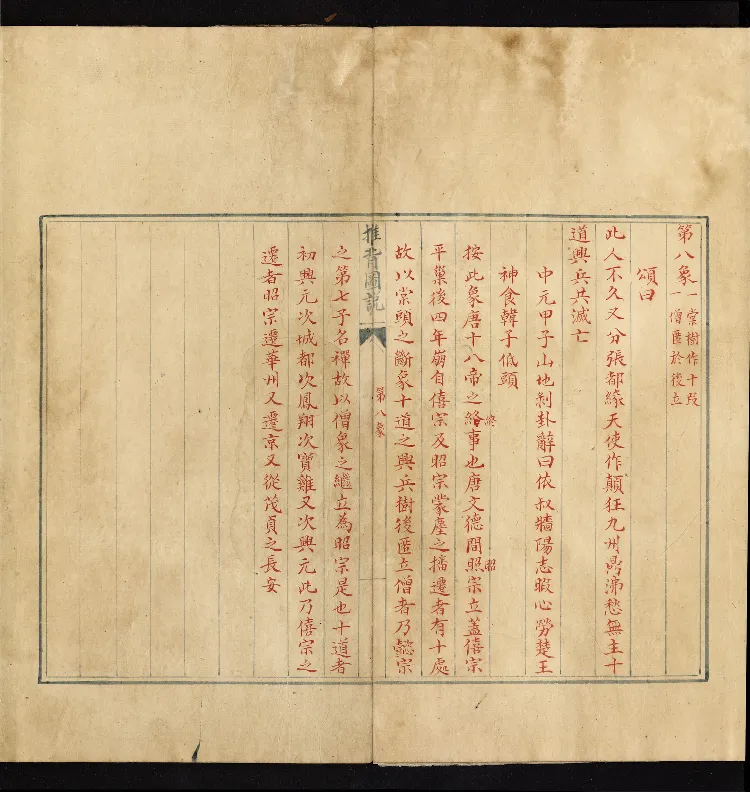 第八象
一棠樹作十段
一僧匿於後立
頌曰
此人不久又分張都緣天使作顛狂九州鼎沸愁無主十
道興兵共滅亡
中元甲子山地剝卦辭曰依叔牆陽志暇心勞楚王
神食韓子低頭
按此象唐十八帝之絡事也唐文德間照宗立蓋僖宗
終
昭
平巢後四年崩自僖宗及昭宗蒙塵之播遷者有十處
故以棠頭之斷象十道之興兵樹後匿立僧者乃懿宗
推背圖說
第八象
之第七子名禪故以僧象之繼立為昭宗是也十道者
初興元次城都次鳳翔次寶雞又次興元此乃僖宗之
遷者昭宗遷華州又遷京又從茂貞之長安